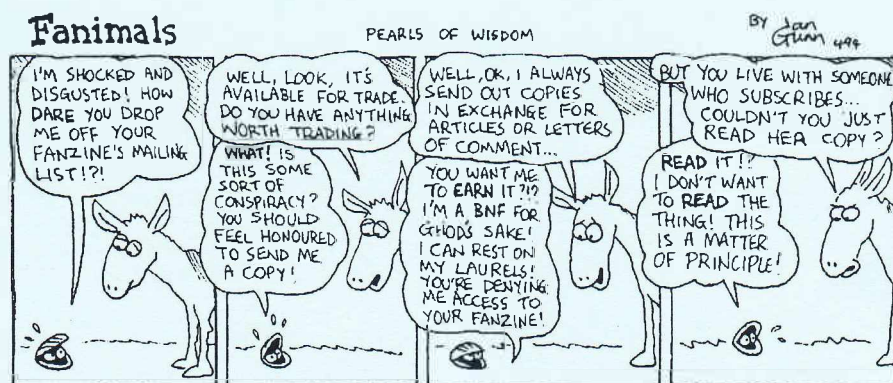 Fanimals
PEARLS OF WISDOM
BY Ian
Gunn 494
I'M SHOCKED AND
DISGUSTED! HOW
DARE YOU DROP
ME OFF YOUR
FANZINE'S MAILING
LIST!?!
WELL, LOOK, IT'S
AVAILABLE FOR TRADE.
DO YOU HAVE ANYTHING
WORTH TRADING?
WHAT! IS
THIS SOME
SORT OF
CONSPIRACY?
YOU SHOULD
FEEL HONOURED
TO SEND ME
A COPY!
WELL, OK, I ALWAYS
SEND OUT COPIES
IN EXCHANGE FOR
ARTICLES OR LETTERS
OF COMMENT...
YOU WANT ME
TO EARN IT?!?
I'M A BNF FOR
GHOD'S SAKE!
I CAN REST ON
MY LAURELS!
YOU'RE DENYING
ME ACCESS TO
YOUR FANZINE!
BUT YOU LIVE WITH SOMEONE
WHO SUBSCRIBES...
COULDN'T YOU JUST
READ HER COPY?
READ IT!?
I DON'T WANT
TO READ THE
THING! THIS
IS A MATTER
OF PRINCIPLE!